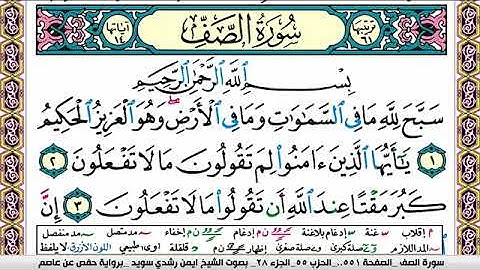 ترتيبها ٦١
سُورَةُ الصَّفِّ
آياتها ١٤
بِسْمِ اللَّهِ الرَّحْمَٰنِ الرَّحِيمِ
سَبَّحَ لِلَّهِ مَا فِي السَّمَاوَاتِ وَمَا فِي الْأَرْضِ ۖ وَهُوَ الْعَزِيزُ الْحَكِيمُ
١ يَا أَيُّهَا الَّذِينَ ءَامَنُوا لِمَ تَقُولُونَ مَا لَا تَفْعَلُونَ ٢
كَبُرَ مَقْتًا عِندَ اللَّهِ أَن تَقُولُوا مَا لَا تَفْعَلُونَ ٣ إِنَّ
م إقلاب سـ غنة ن م إدغام بلاغنة ن م إدغام ن م إخفاء مد متصل مد منفصل
المد اللازم صلة كبرى صلة صغرى إظهار ن م قلقلة أوى طبيعي اللون الأزرق لا يلفظ
سورة الصف _الصفحة ٥٥١_ الحزب ٥٥_ الجزء ٢٨_ بصوت الشيخ ايمن رشدي سويد _برواية حفص عن عاصم